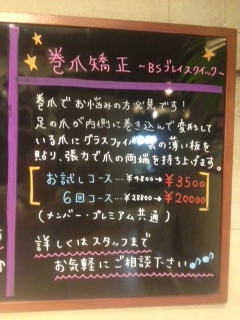 巻爪矯正 ~BSブレイスクイック~
巻爪でお悩みの方必見です!
足の爪が内側に巻き込んで変形して
いる爪にグラスファイバー の薄い板を
貼り、張力で爪の両端を持ち上げます。
お試しコース…¥4800→¥3500
6回コース…¥28800→¥20000
(メンバー・プレミアム共通)
詳しくはスタッフまで
お気軽にご相談下さい♪♪